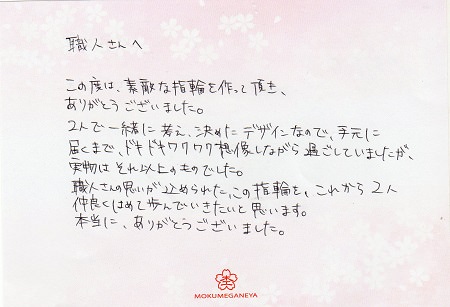 職人さんへ
この度は、素敵な指輪を作って頂き、
ありがとうございました。
2人で一緒に考え、決めたデザインなので、手元に
届くまで、ドキドキワクワク想像しながら過ごしていましたが、
実物はそれ以上のものでした。
職人さんの思いが込められた、この指輪を、これから2人
仲良くはめて歩んでいきたいと思います。
本当に、ありがとうございました。
MOKUMEGANEYA